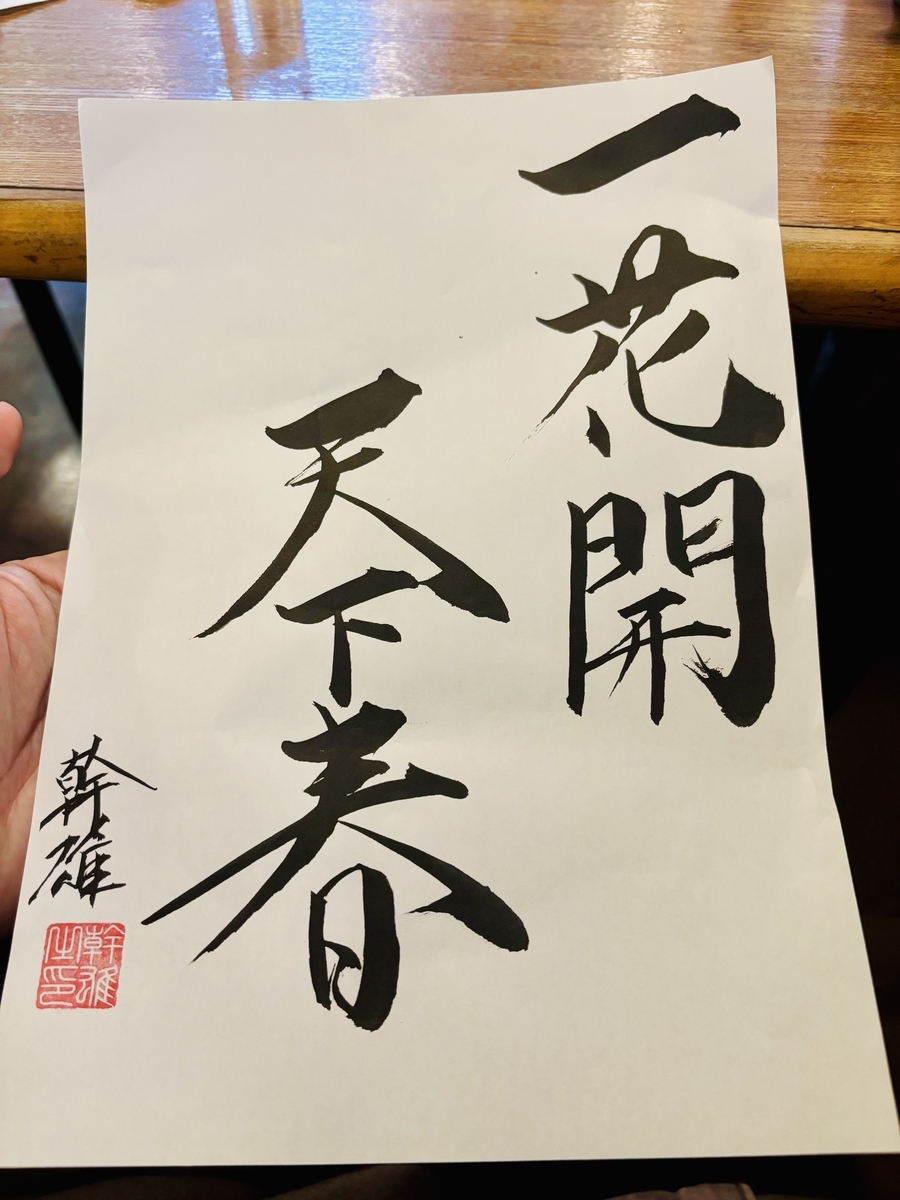 一花開
天下春
幹雄
幹雄之印